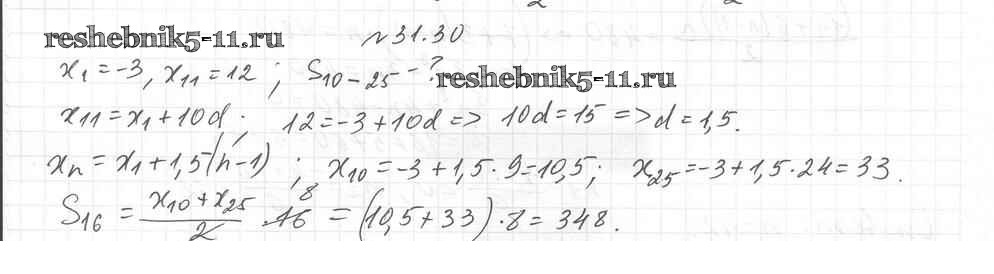 reshebnik5-11.ru
№31.30
x₁ = -3, x₁₁ = 12 ; S₁₀₋₂₅ - ?
reshebnik5-11.ru
x₁₁ = x₁ + 10d. 12 = -3 + 10d => 10d = 15 => d = 1,5.
xₙ = x₁ + 1,5(n-1) ; x₁₀ = -3 + 1,5 · 9 = 10,5 ; x₂₅ = -3 + 1,5 · 24 = 33.
S₁₆ = (x₁₀ + x₂₅)/2 · 16 8 = (10,5 + 33) · 8 = 348.